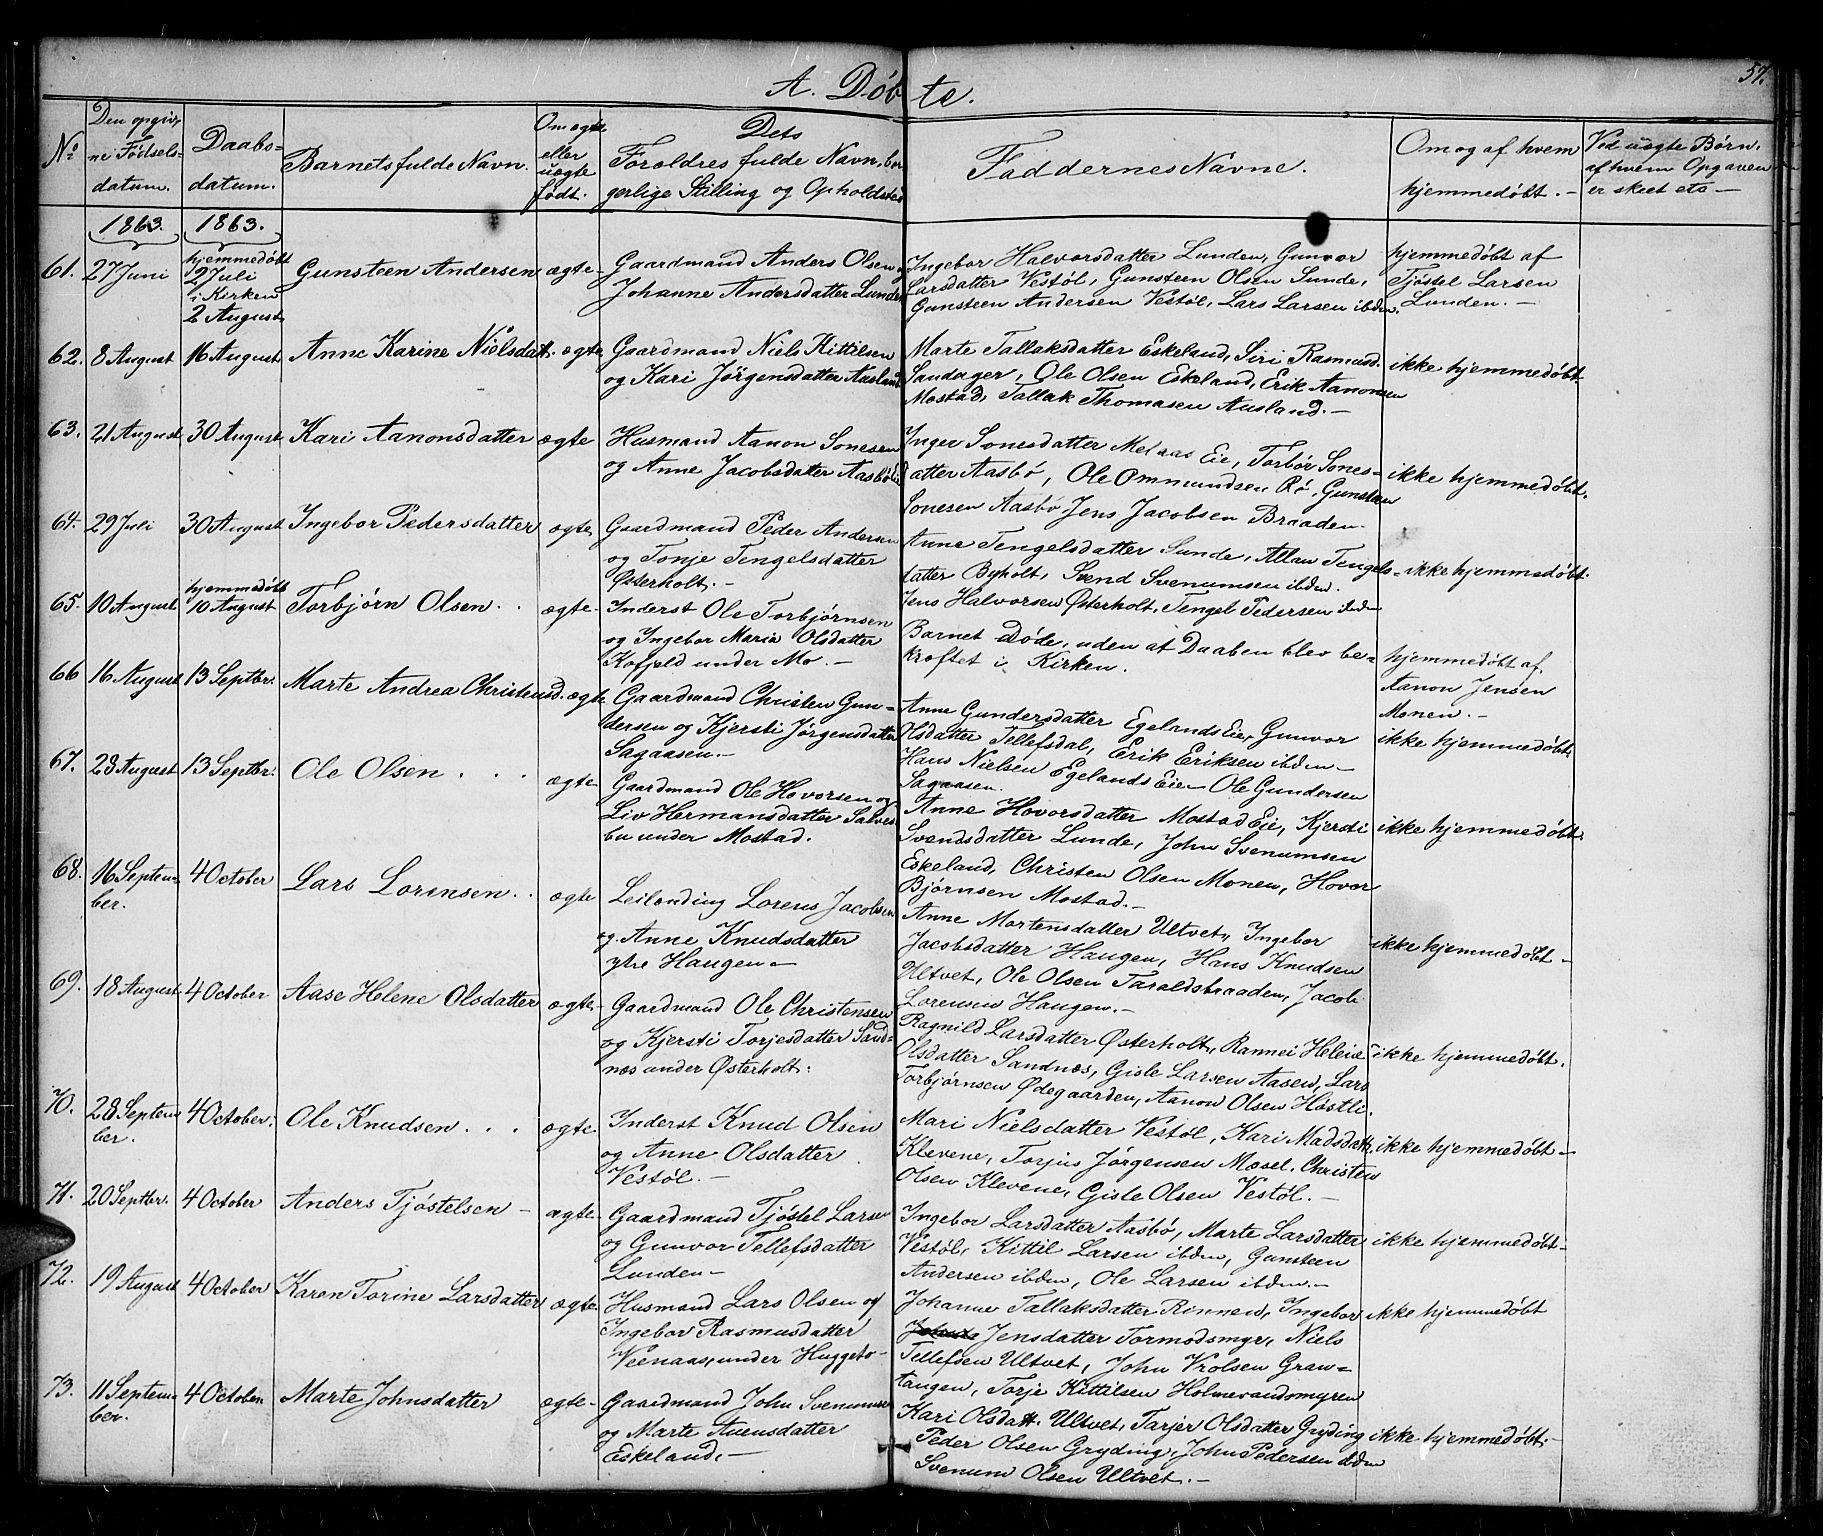 57.
A. Döbte.
No
Den opgiv-
ne Födsels-
datum.
Daabs-
datum.
Barnets fulde Navn.
Om ægte
eller
uægte
födt.
Dets
Foræld res fulde Navn, bor
gerlige Stilling og Opholdssted
Faddernes Navne.
Om og af hvem
hjemmedöbt. -
Ved uægte Börn.
af hvem Opgaven
er skeet etc -
1863. 1863.
61. 27 Juni
hjemmedöbt
2 Juli
i Kirken
2 August
Gunsteen Andersen ægte-
Gaardmand Anders Olsen og
Johanne Andersdatter Lunden
Ingebor Halvorsdatter Lunden, Gunvor
Larsdatter Vestöl, Gunsteen Olsen Sunde,
Gunsteen Andersen Vestöl, Lars Larsen ibdm.
hjemmedöbt af
Tjöstel Larsen
Lunden. -
62. 8 August 16 August Anne Karine Nielsdat. ægte
Gaardmand Niels Kittilsen
og Kari Jörgensdatter Aasland
Marte Tallaksdatter Eskeland, Siri Rasmusd.
Sandager, Ole Olsen Eskeland, Erik Aanonsen
Mostad, Tallak Thomasen Ausland. -
ikke hjemmedöbt
63. 21 August 30 August Kari Aanonsdatter ægte
Husmand Aanon Sonesen
og Anne Jacobsdatter Aasböeie
Inger Sonesdatter Melaas Eie, Torbör Sones-
datter Aasbö, Ole Ommundsen Rö, Gunsteen
Sonesen Aasbö Jens Jacobsen Braaden.
ikke hjemmedöbt.
64. 29 Juli 30 August Ingebor Pedersdatter ægte
Gaardmand Peder Andersen
og Tonje Tengelsdatter
Østerholt. -
Anne Tengelsdatter Sunde, Allau Tengels-
datter Byholt, Svend Svenumsen ibdm.
Jens Halvorsen Østerholt, Tengel Pedersen ibdm
ikke hjemmedöbt.
65. 10 August
hjemmedöbt
10 August
Torbjörn Olsen . . ægte-
Inderst Ole Torbjörnsen
og Ingebor Maria Olsdatter
Kofjeld under Mo. -
Barnet döde, uden at Daaben blev be-
kræftet i Kirken.
hjemmedöbt af
Aanon Jensen
Monen. -
66 16 August 13 Septbr. Marte Andrea Christensd. ægte
Gaardmand Christen Gun-
dersen og Kjersti Jörgensdatter
Sagaasen. -
Anne Gundersdatter Egelands Eie, Gunvor
Olsdatter Tellefsdal, Erik Eriksen ibdm -
Hans Nielsen Egelands Eie - Ole Gundersen
Sagaasen.
ikke hjemmedöbt.
67. 28 August 13 Septbr. Ole Olsen . . . ægte-
Gaardmand Ole Hovorsen og
Liv Hermansdatter Salves
bu under Mostad.
Anne Hovorsdatter Mostad Eie, Kjersti
Svendsdatter Lunde, John Svenumsen
Eskeland, Christen Olsen Monen, Hovor
Björnsen Mostad. -
ikke hjemmedöbt.
68. 16 Septem-
ber.
4 October Lars Lorensen . . ægte
Leilending Lorens Jacobsen
og Anne Knudsdatter
ytre Haugen -
Anne Mortensdatter Ultvet, Ingebor
Jacobsdatter Haugen, Hans Knudsen
Ultvet, Ole Olsen Taraldsbraaden, Jacob
Lorensen Haugen. -
ikke hjemmedöbt -
69. 18 August 4 October Aase Helene Olsdatter ægte-
Gaardmand Ole Christensen
og Kjersti Torjesdatter Sand-
næs under Østerholt.
Ragnild Larsdatter Østerholt, Rannei Helene
Olsdatter Sandnæs, Gisle Larsen Aasen, Lars
Torbjörnsen Ødegaarden, Aanon Olsen Höstli.
ikke hjemmedöbt.
70. 28 Septem
ber.
4 October. Ole Knudsen . . . ægte.
Inderst Knud Olsen
og Anne Olsdatter
Vestöl. -
Mari Nielsdatter Vestöl, Kari Madsdatt.
Klevene, Torjus Jörgensen Mosel. Christen
Olsen Klevene, Gisle Olsen Vestöl. -
ikke hjemmedöbt -
71. 20 Septbr. 4 October Anders Tjöstelsen - ægte-
Gaardmand Tjöstel Larsen
og Gunvor Tellefsdatter
Lunden -
Ingebor Larsdatter Aasbö, Marte Larsdatter
Vestöl, Kittil Larsen ibdm, Gunsteen
Andersen ibdm, Ole Larsen ibdm. -
ikke hjemmedöbt -
72. 19 August 4 October Karen Torine Larsdatter ægte.
Husmand Lars Olsen og
Ingebor Rasmusdatter
Veenaas, under Huggeto-
Johanne Tallaksdatter Rönnen, Ingebor
Jensdatter Tormodsmyr, Niels
Tellefsen Ultvet, John Vrolsen Gran-
tangen, Torje Kittilsen Holmevandsmyren
ikke hjemmedöbt
73. 11 Septem-
ber.
4 October Marte Johnsdatter ægte-
Gaardmand John Svenumsen
og Marte Auensdatter
Eskeland. -
Kari Olsdatt. Ultvet, Tarjer Olsdatter Gryding
Peder Olsen Gryding, John Pedersen ibdm
Svenum Olsen Ultvet. -
ikke hjemmedöbt.